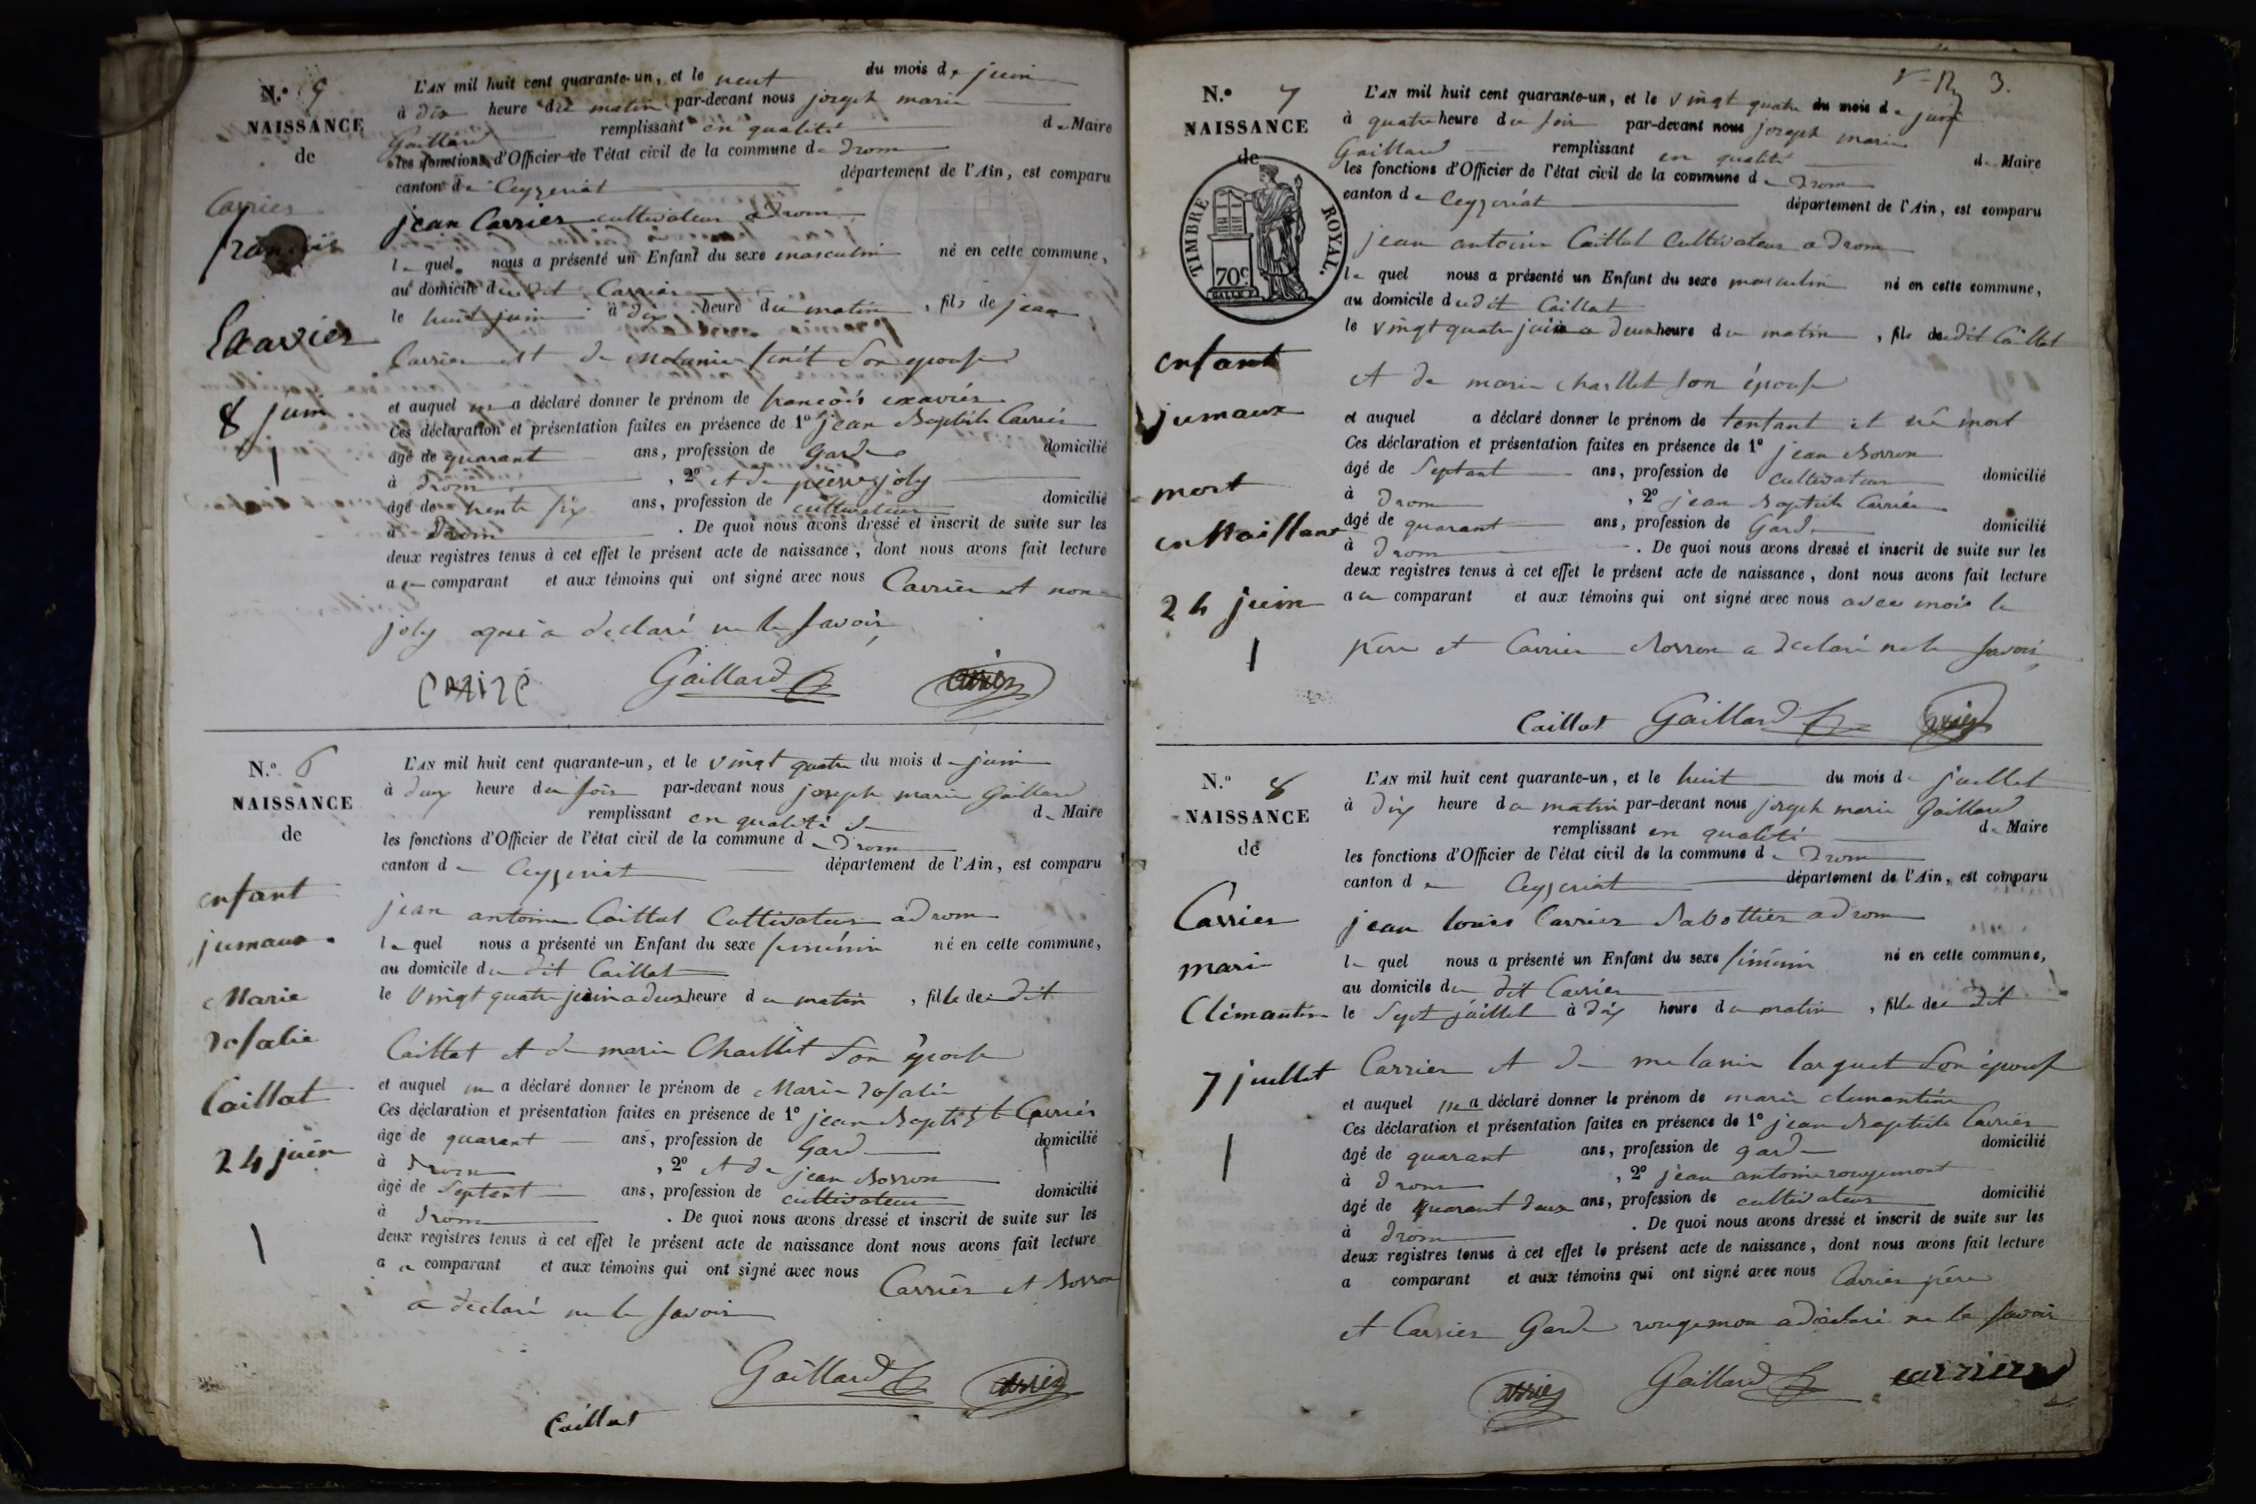 N.º 5
NAISSANCE
de
Carrier
françois
Exavier
8 juin
L'AN mil huit cent quarante-un, et le neuf du mois de juin
à dix heure du matin par-devant nous joseph marie
Gaillard remplissant en qualité de Maire
les fonctions d'Officier de l'état civil de la commune de Drom
canton de Ceyzeriat département de l'Ain, est comparu
jean Carrier cultivateur a Drom
le quel nous a présenté un Enfant du sexe masculin né en cette commune,
au domicile dudit Carrier
le huit juin à dix heure du matin, fils de jean
Carrier et de Melanie son epouse
et auquel a déclaré donner le prénom de françois exavier
Ces déclaration et présentation faites en présence de 1º jean Baptiste Carrier
âgé de quarant ans, profession de Garde domicilié
à Drom, 2º et de pierre joly
âgé de trente six ans, profession de cultivateur domicilié
à Drom. De quoi nous avons dressé et inscrit de suite sur les
deux registres tenus à cet effet le présent acte de naissance, dont nous avons fait lecture
au comparant et aux témoins qui ont signé avec nous Carrier et non
joly qui a declaré ne le savoir
Gaillard
N.º 6
NAISSANCE
de
enfant
jumaux
Marie
rosalie
Caillat
24 juin
L'AN mil huit cent quarante-un, et le vingt quatre du mois de juin
à deux heure du soir par-devant nous joseph marie Gaillard
remplissant en qualité de de Maire
les fonctions d'Officier de l'état civil de la commune de Drom
canton de Ceyzeriat département de l'Ain, est comparu
jean antoine Caillat Cultivateur a drom
le quel nous a présenté un Enfant du sexe feminin né en cette commune,
au domicile du dit Caillat
le vingt quatre juin a deux heure du matin, fille du dit
Caillat et de marie Chaillet son épouse
et auquel a déclaré donner le prénom de Marie rosalie
Ces déclaration et présentation faites en présence de 1º jean Baptiste Carrier
âgé de quarant ans, profession de Gard domicilié
à Drom, 2º et de jean Borron
âgé de Septant ans, profession de cultivateur domicilié
à Drom. De quoi nous avons dressé et inscrit de suite sur les
deux registres tenus à cet effet le présent acte de naissance dont nous avons fait lecture
au comparant et aux témoins qui ont signé avec nous Carrier et Borron
a declaré ne le savoir
Gaillard
Caillat
3.
N.º 7
NAISSANCE
de
TIMBRE ROYAL.
70c
enfant
jumaux
mort
en Naissant
24 juin
L'AN mil huit cent quarante-un, et le vingt quatre du mois de juin
à quatre heure du soir par-devant nous joseph marie
Gaillard remplissant en qualité de Maire
les fonctions d'Officier de l'état civil de la commune de Drom
canton de Ceyzeriat département de l'Ain, est comparu
jean antoine Caillat Cultivateur a drom
le quel nous a présenté un Enfant du sexe masculin né en cette commune,
au domicile dudit Caillat
le vingt quatre juin a deux heure du matin, fils dudit Caillat
et de marie chaillet son épouse
et auquel a déclaré donner le prénom de lenfant et né mort
Ces déclaration et présentation faites en présence de 1º jean Borron
âgé de Septant ans, profession de cultivateur domicilié
à Drom, 2º jean Baptiste Carrier
âgé de quarant ans, profession de Gard domicilié
à Drom. De quoi nous avons dressé et inscrit de suite sur les
deux registres tenus à cet effet le présent acte de naissance, dont nous avons fait lecture
au comparant et aux témoins qui ont signé avec nous avec mois le
père et Carrier Borron a declaré ne le savoir
Caillat Gaillard
N.º 8
NAISSANCE
de
Carrier
mari
Clémantine
7 juillet
L'AN mil huit cent quarante-un, et le huit du mois de juillet
à dix heure du matin par-devant nous joseph marie Gaillard
remplissant en qualité de Maire
les fonctions d'Officier de l'état civil de la commune de Drom
canton de Ceyzeriat département de l'Ain, est comparu
jean louis Carrier Sabottier a drom
le quel nous a présenté un Enfant du sexe féminin né en cette commune,
au domicile du dit Carrier
le Sept juillet à dix heure du matin, fille du dit
Carrier et de melanie larguet son épouse
et auquel a déclaré donner le prénom de marie clemantine
Ces déclaration et présentation faites en présence de 1º jean Baptiste Carrier
âgé de quarant ans, profession de gard domicilié
à Drom, 2º jean antoine rougemont
âgé de quarant deux ans, profession de cultivateur domicilié
à Drom. De quoi nous avons dressé et inscrit de suite sur les
deux registres tenus à cet effet le présent acte de naissance, dont nous avons fait lecture
a comparant et aux témoins qui ont signé avec nous Carrier père
et Carrier Garde rougemon a déclaré ne le savoir
Gaillard carrier